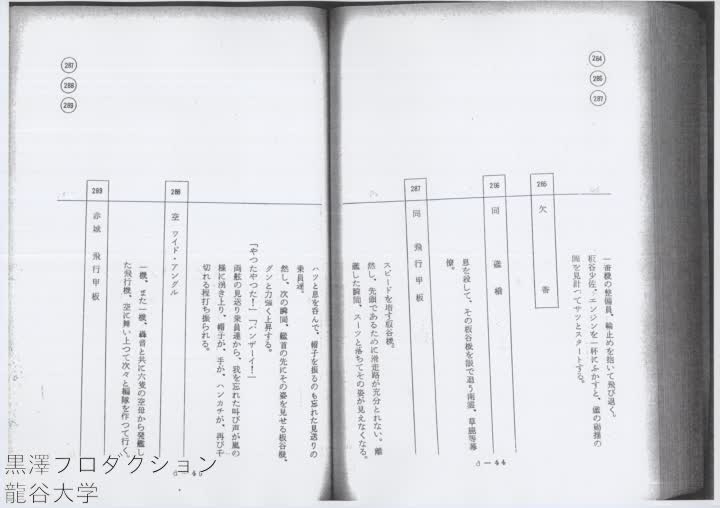 284
285
287
一番機の整備員、輪止めを抱いて飛び退く。
板谷少佐、エンジンを一杯にふかすと、艦の動揺の
間を見計つてサツとスタートする。
285 欠番
286 同 艦橋
息を殺して、その板谷機を眼で追う南雲、草鹿等幕
僚。
287 同 飛行甲板
スピードを増す板谷機。
然し、先頭であるために滑走路が充分とれない。離
艦した瞬間、スーツと落ちてその姿が見えなくなる。
6-44
287
288
289
ハツと息を呑んで、帽子を振るのも忘れた見送りの
乗員達。
然し、次の瞬間、艦首の先にその姿を見せる板谷機、
グンと力強く上昇する。
「やつたやつた！」「バンザーイ！」
両舷の見送り乗員達から、我を忘れた叫び声が嵐の
様に湧き上り、帽子が、手が、ハンカチが、再び千
切れる程打ち振られる。
288 空 ワイド・アングル
一機、また一機、轟音と共に六隻の空母から発艦し
た飛行機、空に舞い上つて次々と編隊を作つて行く。
289 赤城 飛行甲板
6-45
黒澤プロダクション
龍谷大学